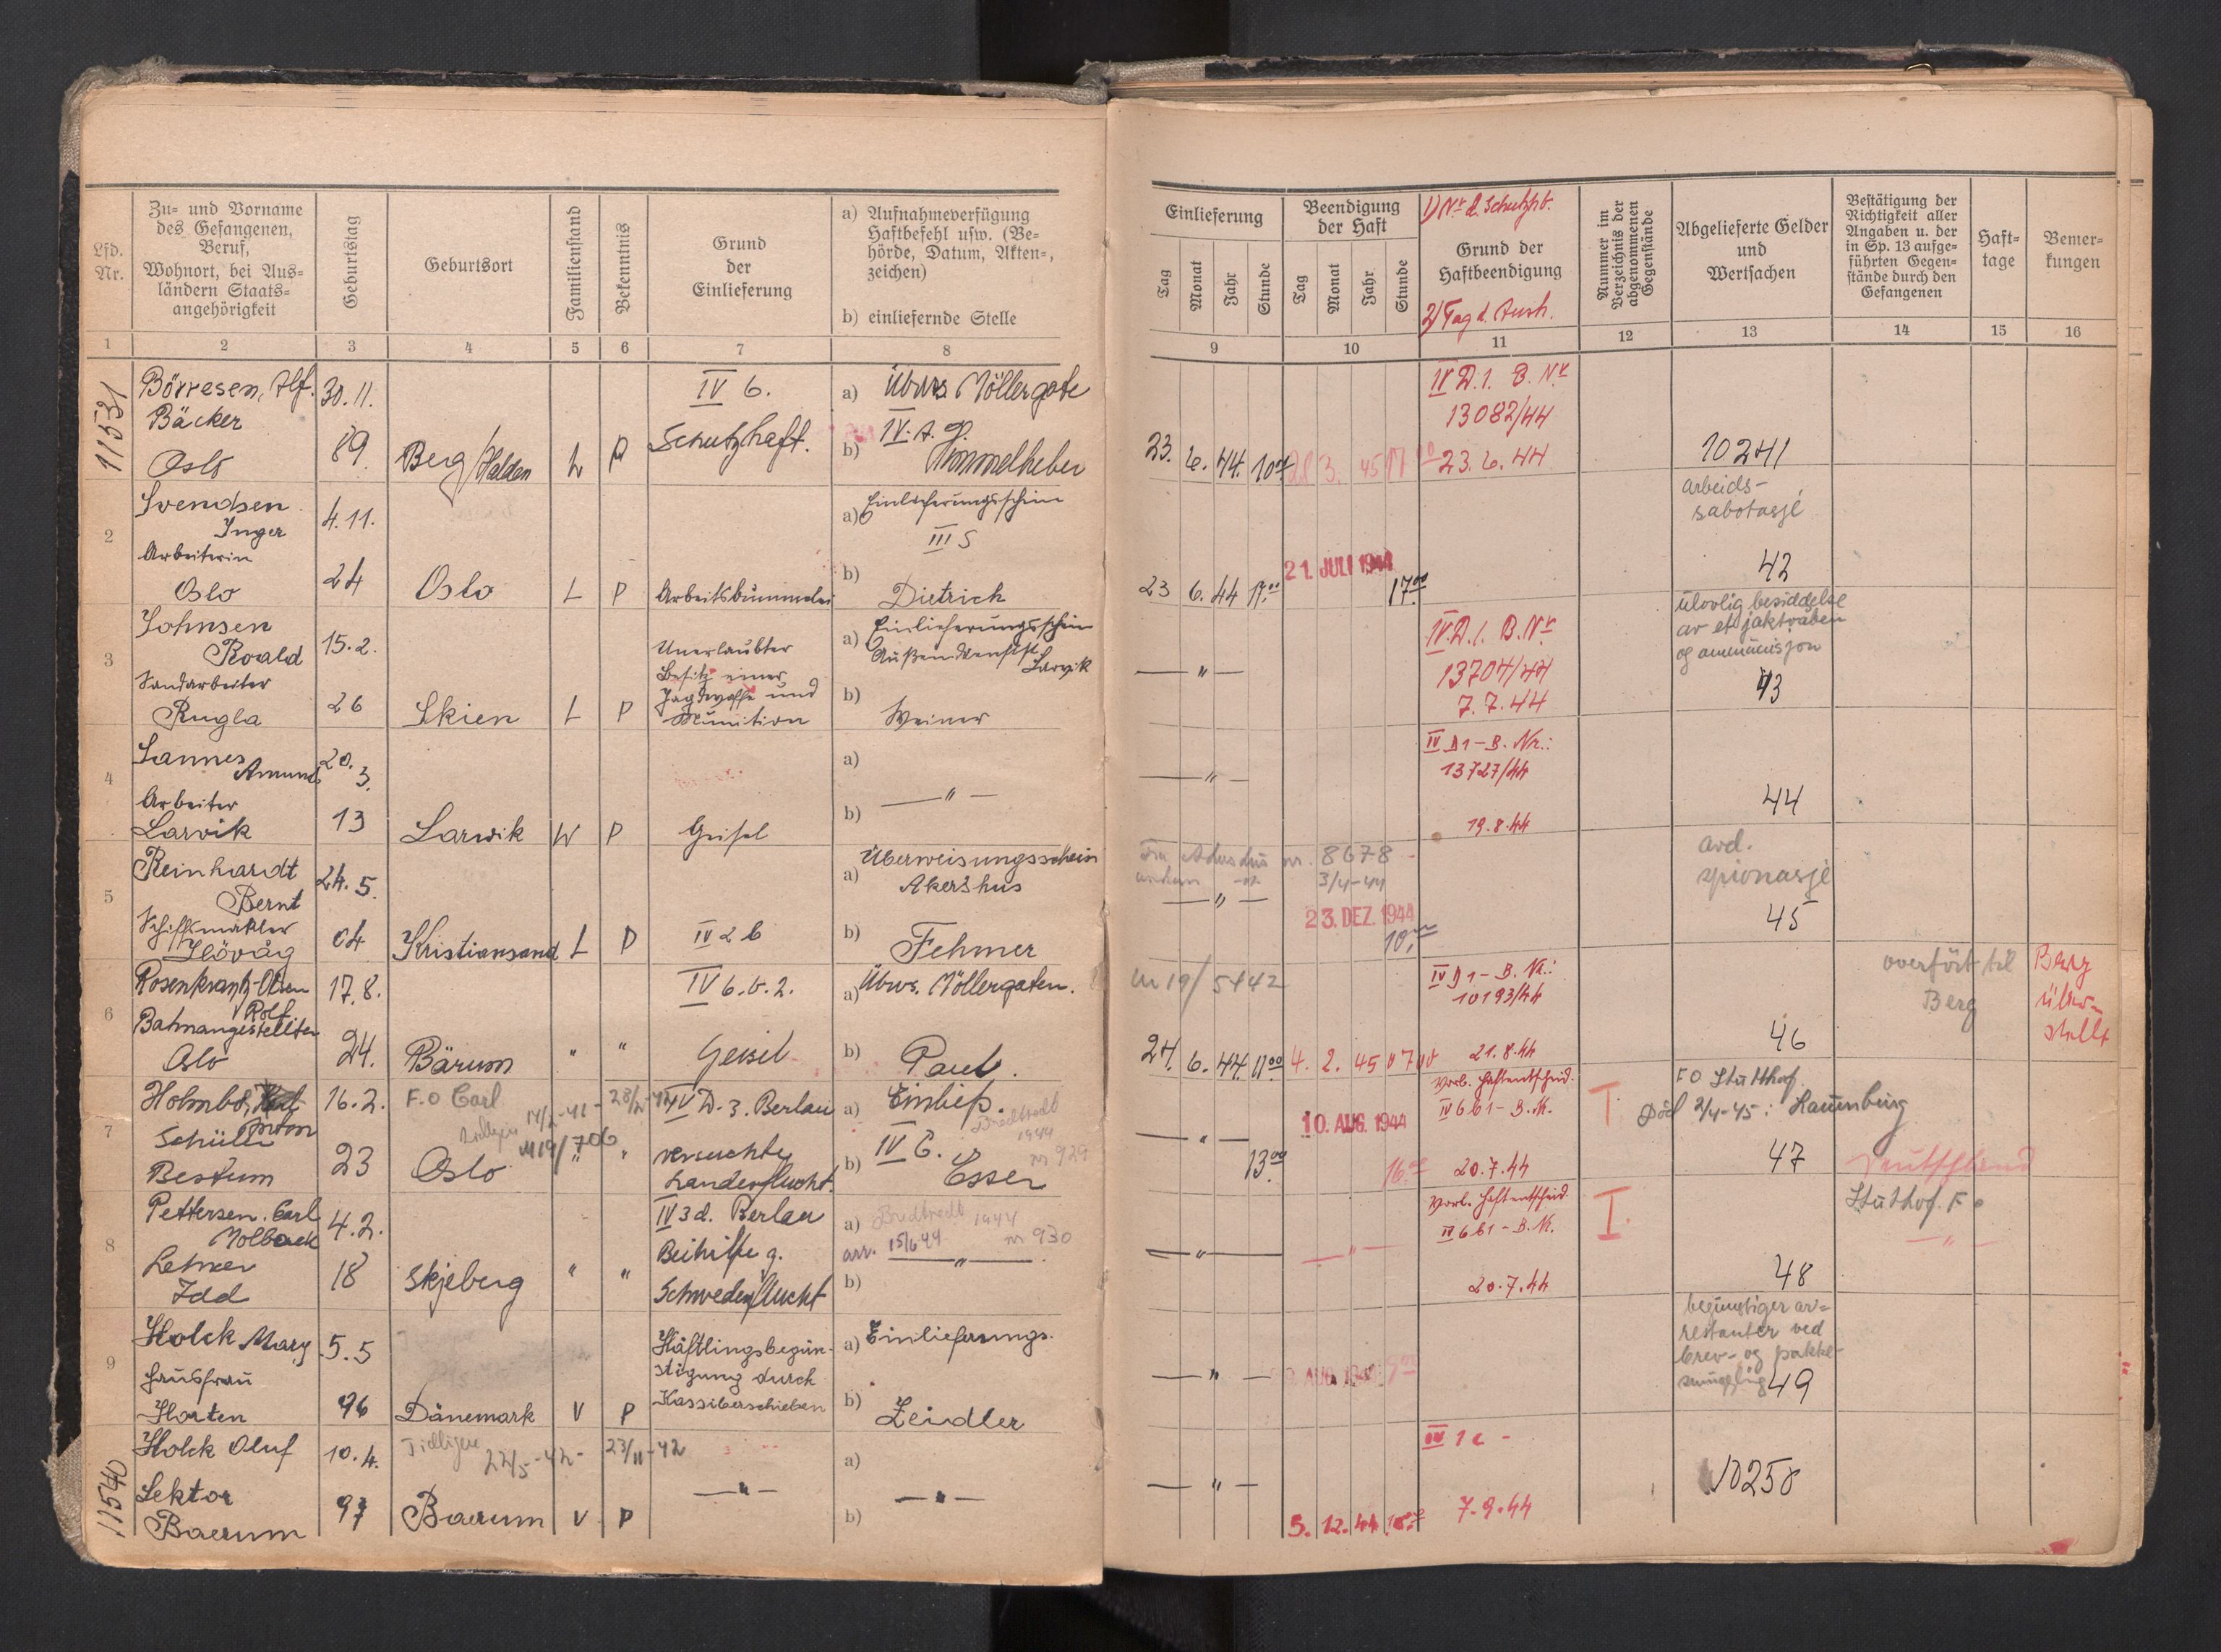 Lfd. Nr.
Zu- und Vorname des Gefangenen, Beruf, Wohnort, bei Ausländern Staatsangehörigkeit
Geburtstag
Geburtsort
Familienstand
Bekenntnis
Grund der Einlieferung
a) Aufnahmeverfügung Haftbefehl usw. (Behörde, Datum, Aktenzeichen)
b) einliefernde Stelle
1 2 3 4 5 6 7 8
11531
Börresen, Alf.
Bäcker
Oslo
30.11.
89
Berg/Halden
IV 6.
Schutzhaft.
a) Übws. Möllergate
IV. A.
b) Himmelheber
2
Svendsen
Inger
Arbeiterin
Oslo
4.11.
24
Oslo
L P
Arbeitsbummelei
a) Einlieferungsschein
III S
b) Dietrich
3
Johnsen
Roald
Landarbeiter
Rugla
15.2.
26
Skien
L P
Unerlaubter
Besitz einer
Jagdwaffe und
Munition
a) Einlieferungsschein
Außendienst
Larvik
b) Weiner
4
Lannes
Amund
Arbeiter
Larvik
20.3.
13
Larwik
W P
Geisel
a)
— " —
b)
5
Reinhardt
Bernt
Schiffsmakler
Hövåg
24.5.
04
Kristiansand
L P
IV 2 b
a) Überweisungsschein
Akershus
b) Fehmer
6
Rosenkrantz-Olsen
Rolf
Bahnangestellter
Oslo
17.8.
24.
Bärum
" "
IV 6.b.2.
Geisel
a) Übws. Möllergaten.
b) Paul.
7
Holmbo,
Schüler
Bestum
16.2.
23
F.O Carl
14/2-41 - 28/2-42
M19/706
Oslo
" "
IV D.3. Berlau
versuchte
Landesflucht.
a) Einlief.
Bredtvedt
1944
nr 929
IV C.
b) Esser
8
Pettersen. Carl
Molback
Lehrer
Idd
4.2.
18
Skjeberg
" "
IV 3d. Berlau
Beihilfe z.
Schwedenflucht
a) Bredtvedt 1944
arr. 15/6 44 nr 930
— " —
b)
9
Holck Mary
Hausfrau
Horten
5.5
96
Dänemark
V P
Häftlingsbegün-
stigung durch
Kassiberschieben
a) Einlieferungs.
b) Zeidler
11540
Holck Oluf
Lektor
Baerum
10.4.
97
Tidligere
22/5-42 - 23/11-42
Baerum
V P
— " —
a)
— " —
b)
Einlieferung
Tag Monat Jahr Stunde
Beendigung der Haft
Tag Monat Jahr Stunde
1) Nr. d. Schutzh.
Grund der Haftbeendigung
2) Tag d. Ausst.
Nummer im Verzeichnis der abgenommenen Gegenstände
Abgelieferte Gelder und Wertsachen
Bestätigung der Richtigkeit aller Angaben u. der in Sp. 13 aufgeführten Gegenstände durch den Gefangenen
Hafttage
Bemerkungen
9 10 11 12 13 14 15 16
IV D.1. B. Nr
13082/44
23. 6. 44. 10 00 28 3. 45 17 00 23.6.44
10241
arbeids-
sabotasje
21. JULI 1944
23 6. 44 17.00 17 00
42
ulovlig besiddelse
av et jaktvåben
og ammunisjon
43
— " —
IV.D.1. B.Nr
13704/44
7.7.44
— " —
IV D1-B. Nr.:
13727/44
19.8.44
44
Fra Akershus nr. 8678
3/4-44
— " —
23. DEZ. 1944
10.00
avd.
spionasje
45
M 19/5442
IV D1-B. Nr.:
10193/44
24. 6. 44. 11.00 4. 2. 45 0700 21.8.44
46
overført til
Berg
Berg
über-
stellt
— " —
13.00
10. AUG. 1944
16.00
Vorl. Haftentscheid.
IV 6 b 1 - B. Nr.
20.7.44
T
FO Stutthof
Död 2/4-45 i Lauenburg
47
Deutschland
— " —
— " —
Vorl. Haftentscheid.
IV 6 b 1 - B. Nr.
20.7.44
I.
48
Stutthof. Fo
— " —
— " —
AUG. 1944
begunstiger ar-
restanter ved
brev- og pakke-
smugling
49
— " —
5. 12. 44
IV 1 c -
7.9.44
10250